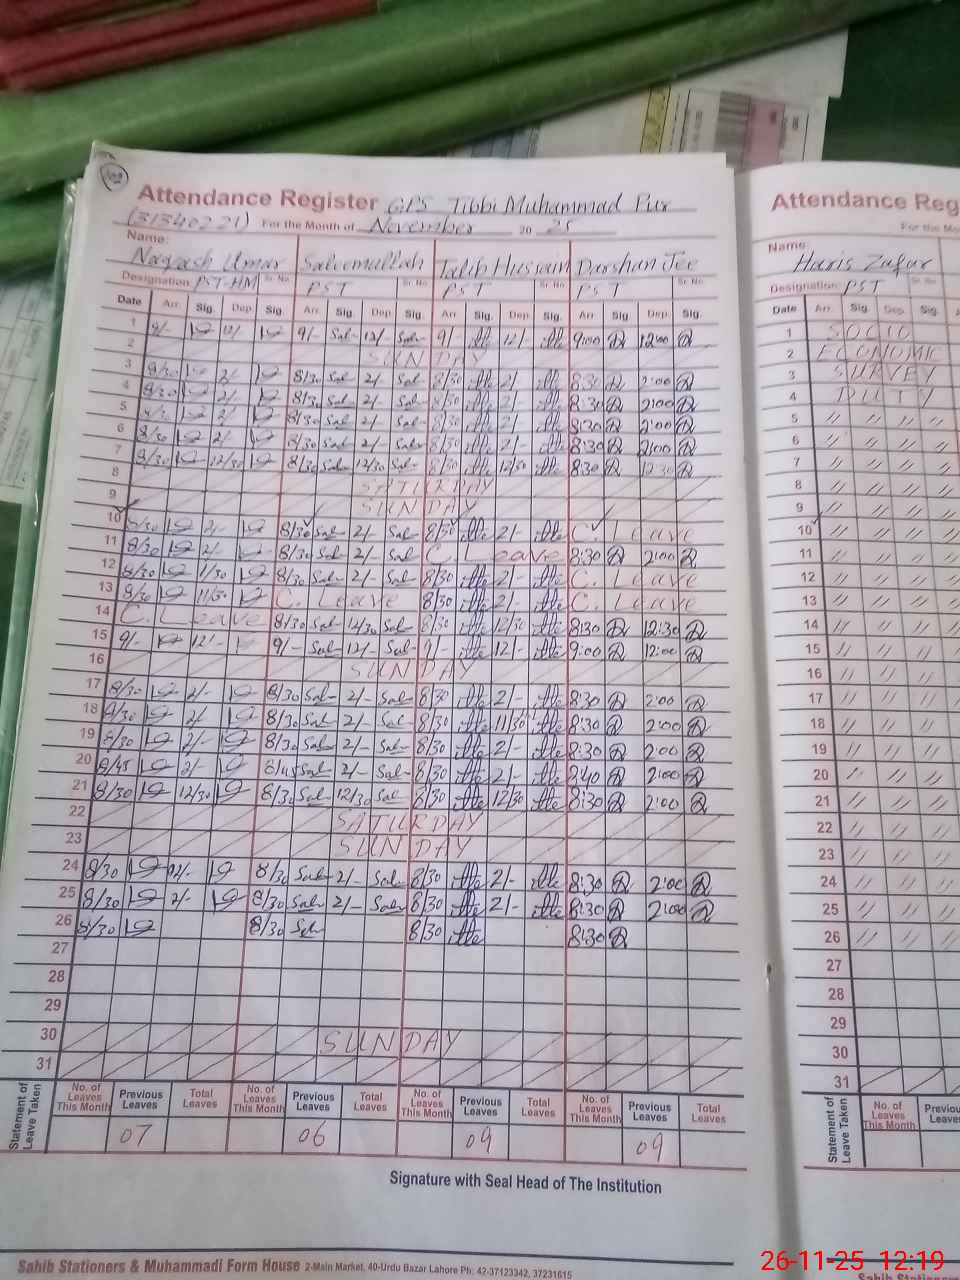 Attendance Register GPS Tibbi Muhammad Pur
(31340221) For the Month of November 20 25
Name: Naqash Umar Saleemullah Talib Hussain Darshan Jee
Designation: PST-HM PST Sr. No. PST Sr. No. PST Sr. No.
Date Arr. Sig. Dep. Sig. Arr. Sig. Dep. Sig. Arr. Sig. Dep. Sig. Arr. Sig. Dep. Sig.
1 9/- 12/- 9/- Sal 12/- Sal 9/ 12/ 9:00 12:00
2 SUNDAY
3 8/30 2/- 8/30 Sal 2/- Sal 8/30 2/- 8:30 2:00
4 8/30 2/- 8/30 Sal 2/- Sal 8/30 2/- 8:30 2:00
5 8/30 2/- 8/30 Sal 2/- Sal 8/30 2/- 8:30 2:00
6 8/30 2/- 8/30 Sal 2/- Sal 8/30 2/- 8:30 2:00
7 8/30 12/30 8/30 Sal 12/30 Sal 8/30 12/30 8:30 12:30
8 SATURDAY
9 SUNDAY
10 8/30 2/- 8/30 Sal 2/- Sal 8/30 2/- C. Leave
11 8/30 2/- 8/30 Sal 2/- Sal C. Leave 8:30 2:00
12 8/30 11/30 8/30 Sal 2/- Sal 8/30 2/- C. Leave
13 8/30 11/30 C. Leave 8/30 2/- C. Leave
14 C. Leave 8/30 Sal 12/30 Sal 8/30 12/30 8:30 12:30
15 9/- 12/- 9/- Sal 12/- Sal 9/- 12/- 9:00 12:00
16 SUNDAY
17 8/30 2/- 8/30 Sal 2/- Sal 8/30 2/- 8:30 2:00
18 8/30 2/- 8/30 Sal 2/- Sal 8/30 11/30 8:30 2:00
19 8/30 2/- 8/30 Sal 2/- Sal 8/30 2/- 8:30 2:00
20 8/45 2/- 8/45 Sal 2/- Sal 8/30 2/- 8:40 2:00
21 8/30 12/30 8/30 Sal 12/30 Sal 8/30 12/30 8:30 2:00
22 SATURDAY
23 SUNDAY
24 8/30 2/- 8/30 Sal 2/- Sal 8/30 2/- 8:30 2:00
25 8/30 2/- 8/30 Sal 2/- Sal 8/30 2/- 8:30 2:00
26 8/30 8/30 Sal 8/30 8:30
27
28
29
30 SUNDAY
31
Statement of Leave Taken No. of Leaves This Month Previous Leaves Total Leaves No. of Leaves This Month Previous Leaves Total Leaves No. of Leaves This Month Previous Leaves Total Leaves No. of Leaves This Month Previous Leaves Total Leaves
07 06 09 09
Signature with Seal Head of The Institution
Sahib Stationers & Muhammadi Form House 2-Main Market, 40-Urdu Bazar Lahore Ph: 42-37123342, 37231615
Attendance Reg
For the Mo
Name: Haris Zafar
Designation: PST Sr. No.
Date Arr. Sig. Dep. Sig. A
1 SOCIO
2 ECONOMIC
3 SURVEY
4 DUTY
5 // // // //
6 // // // //
7 // // // //
8 // // // //
9 // // // //
10 // // // //
11 // // // //
12 // // // //
13 // // // //
14 // // // //
15 // // // //
16 // // // //
17 // // // //
18 // // // //
19 // // // //
20 // // // //
21 // // // //
22 // // // //
23 // // // //
24 // // // //
25 // // // //
26 // // // //
27
28
29
30
31
Statement of Leave Taken No. of Leaves This Month Previou Leave
Sahib Station
26-11-25 12:19